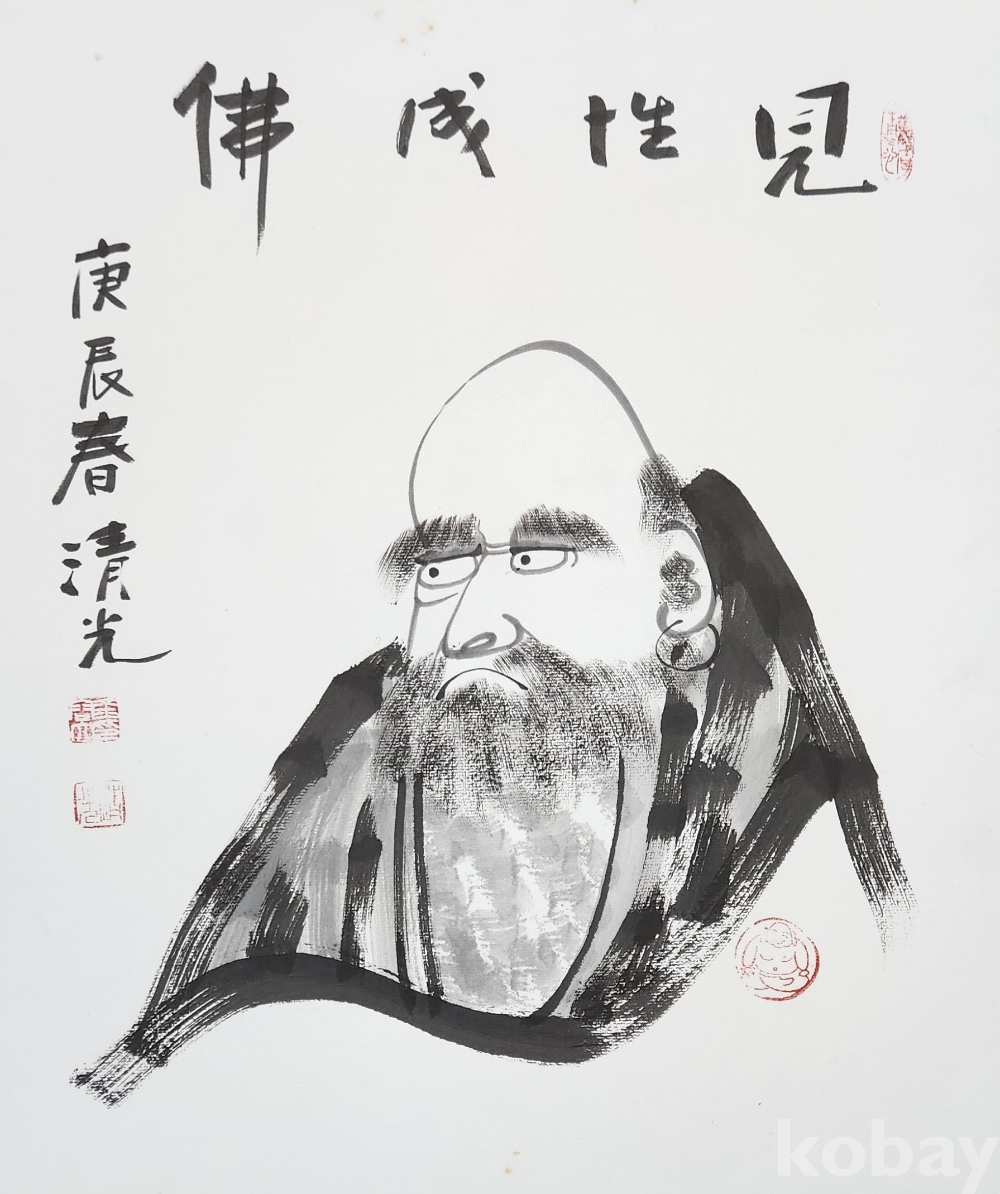 見性成佛
庚辰春清光
kobay